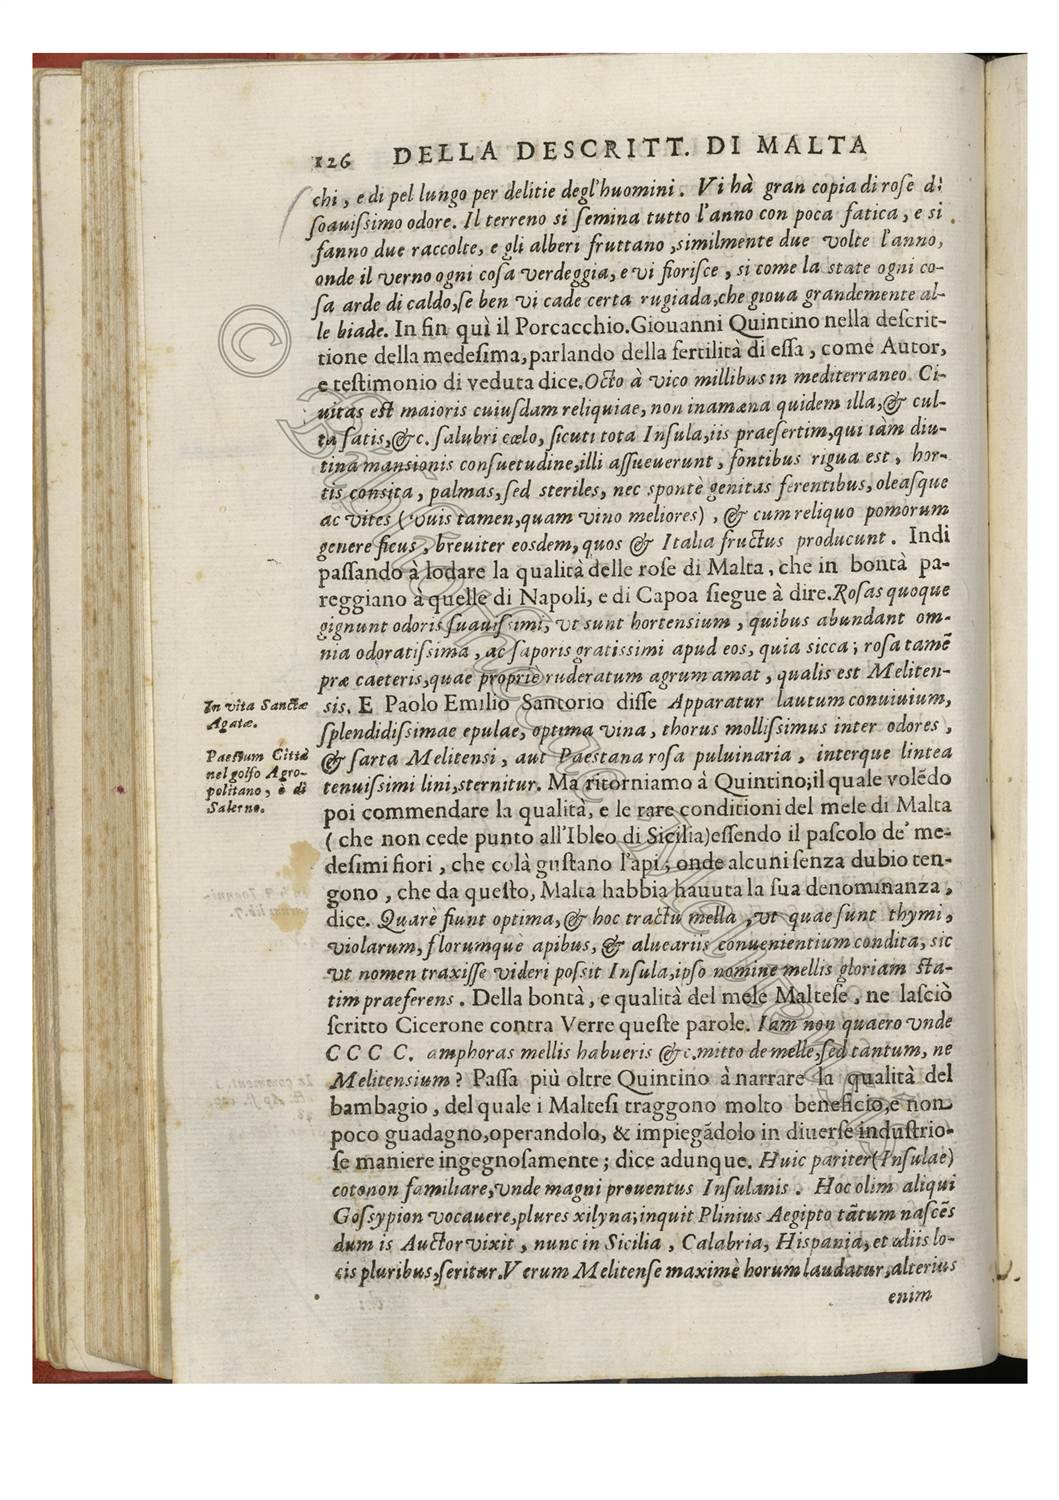 126 DELLA DESCRITT. DI MALTA
chi, e di pel lungo per delitie degl'huomini. Vi hà gran copia di rose di
soauissimo odore. Il terreno si semina tutto l'anno con poca fatica, e si
fanno due raccolte, e gli alberi fruttano, similmente due volte l'anno,
onde il verno ogni cosa verdeggia, e vi fiorisce, si come la state ogni co-
sa arde di caldo, se ben vi cade certa rugiada, che gioua grandemente al-
le biade. In fin quì il Porcacchio. Giouanni Quintino nella descrit-
tione della medesima, parlando della fertilità di essa, come Autor,
e testimonio di veduta dice. Octo à vico millibus in mediterraneo Ci-
uitas est maioris cuiusdam reliquiae, non inamœna quidem illa, & cul-
ta satis, &c. salubri cœlo, sicuti tota Insula, iis praesertim, qui iàm diu-
tina mansionis consuetudine, illi assueuerunt, fontibus rigua est, hor-
tis consita, palmas, sed steriles, nec spontè genitas ferentibus, oleasque
ac vites (vuis tamen, quam vino meliores), & cum reliquo pomorum
genere ficus, breuiter eosdem, quos & Italia fructus producunt. Indi
passando à lodare la qualità delle rose di Malta, che in bontà pa-
reggiano à quelle di Napoli, e di Capoa siegue à dire. Rosas quoque
gignunt odoris suauissimi, vt sunt hortensium, quibus abundant om-
nia odoratissima, ac saporis gratissimi apud eos, quia sicca; rosa tamẽ
præ caeteris, quae propriè ruderatum agrum amat, qualis est Meliten-
sis. E Paolo Emilio Santorio disse Apparatur lautum conuiuium,
splendidissimae epulae, optima vina, thorus mollissimus inter odores,
& sarta Melitensi, aut Paestana rosa puluinaria, interque lintea
tenuissimi lini, sternitur. Ma ritorniamo à Quintino; il quale volẽdo
poi commendare la qualità, e le rare conditioni del mele di Malta
(che non cede punto all'Ibleo di Sicilia) essendo il pascolo de' me-
desimi fiori, che colà gustano l'api; onde alcuni senza dubio ten-
gono, che da questo, Malta habbia hauuta la sua denominanza,
dice. Quarè fiunt optima, & hoc tractu mella, vt quae sunt thymi,
violarum, florumquè apibus, & alueariis conuenientium condita, sic
vt nomen traxisse videri possit Insula, ipso nomine mellis gloriam sta-
tim praeferens. Della bontà, e qualità del mele Maltese, ne lasciò
scritto Cicerone contra Verre queste parole. Iam non quaero vnde
CCCC. amphoras mellis habueris &c. mitto de melle, sed tantum, ne
Melitensium? Passa più oltre Quintino à narrare la qualità del
bambagio, del quale i Maltesi traggono molto beneficio, e non
poco guadagno, operandolo, & impiegãdolo in diuerse industrio-
se maniere ingegnosamente; dice adunque. Huic pariter (Insulae)
cotonon familiare, vnde magni prouentus Insulanis. Hoc olim aliqui
Gossypion vocauere, plures xilyna; inquit Plinius Aegipto tãtum nascẽs
dum is Auctor vixit, nunc in Sicilia, Calabria, Hispania, et aliis lo-
cis pluribus, seritur. Verum Melitense maximè horum laudatur, alterius
enim
In vita Sanctæ
Agatæ.
Paestum Città
nel golfo Agro-
politano, è di
Salerno.